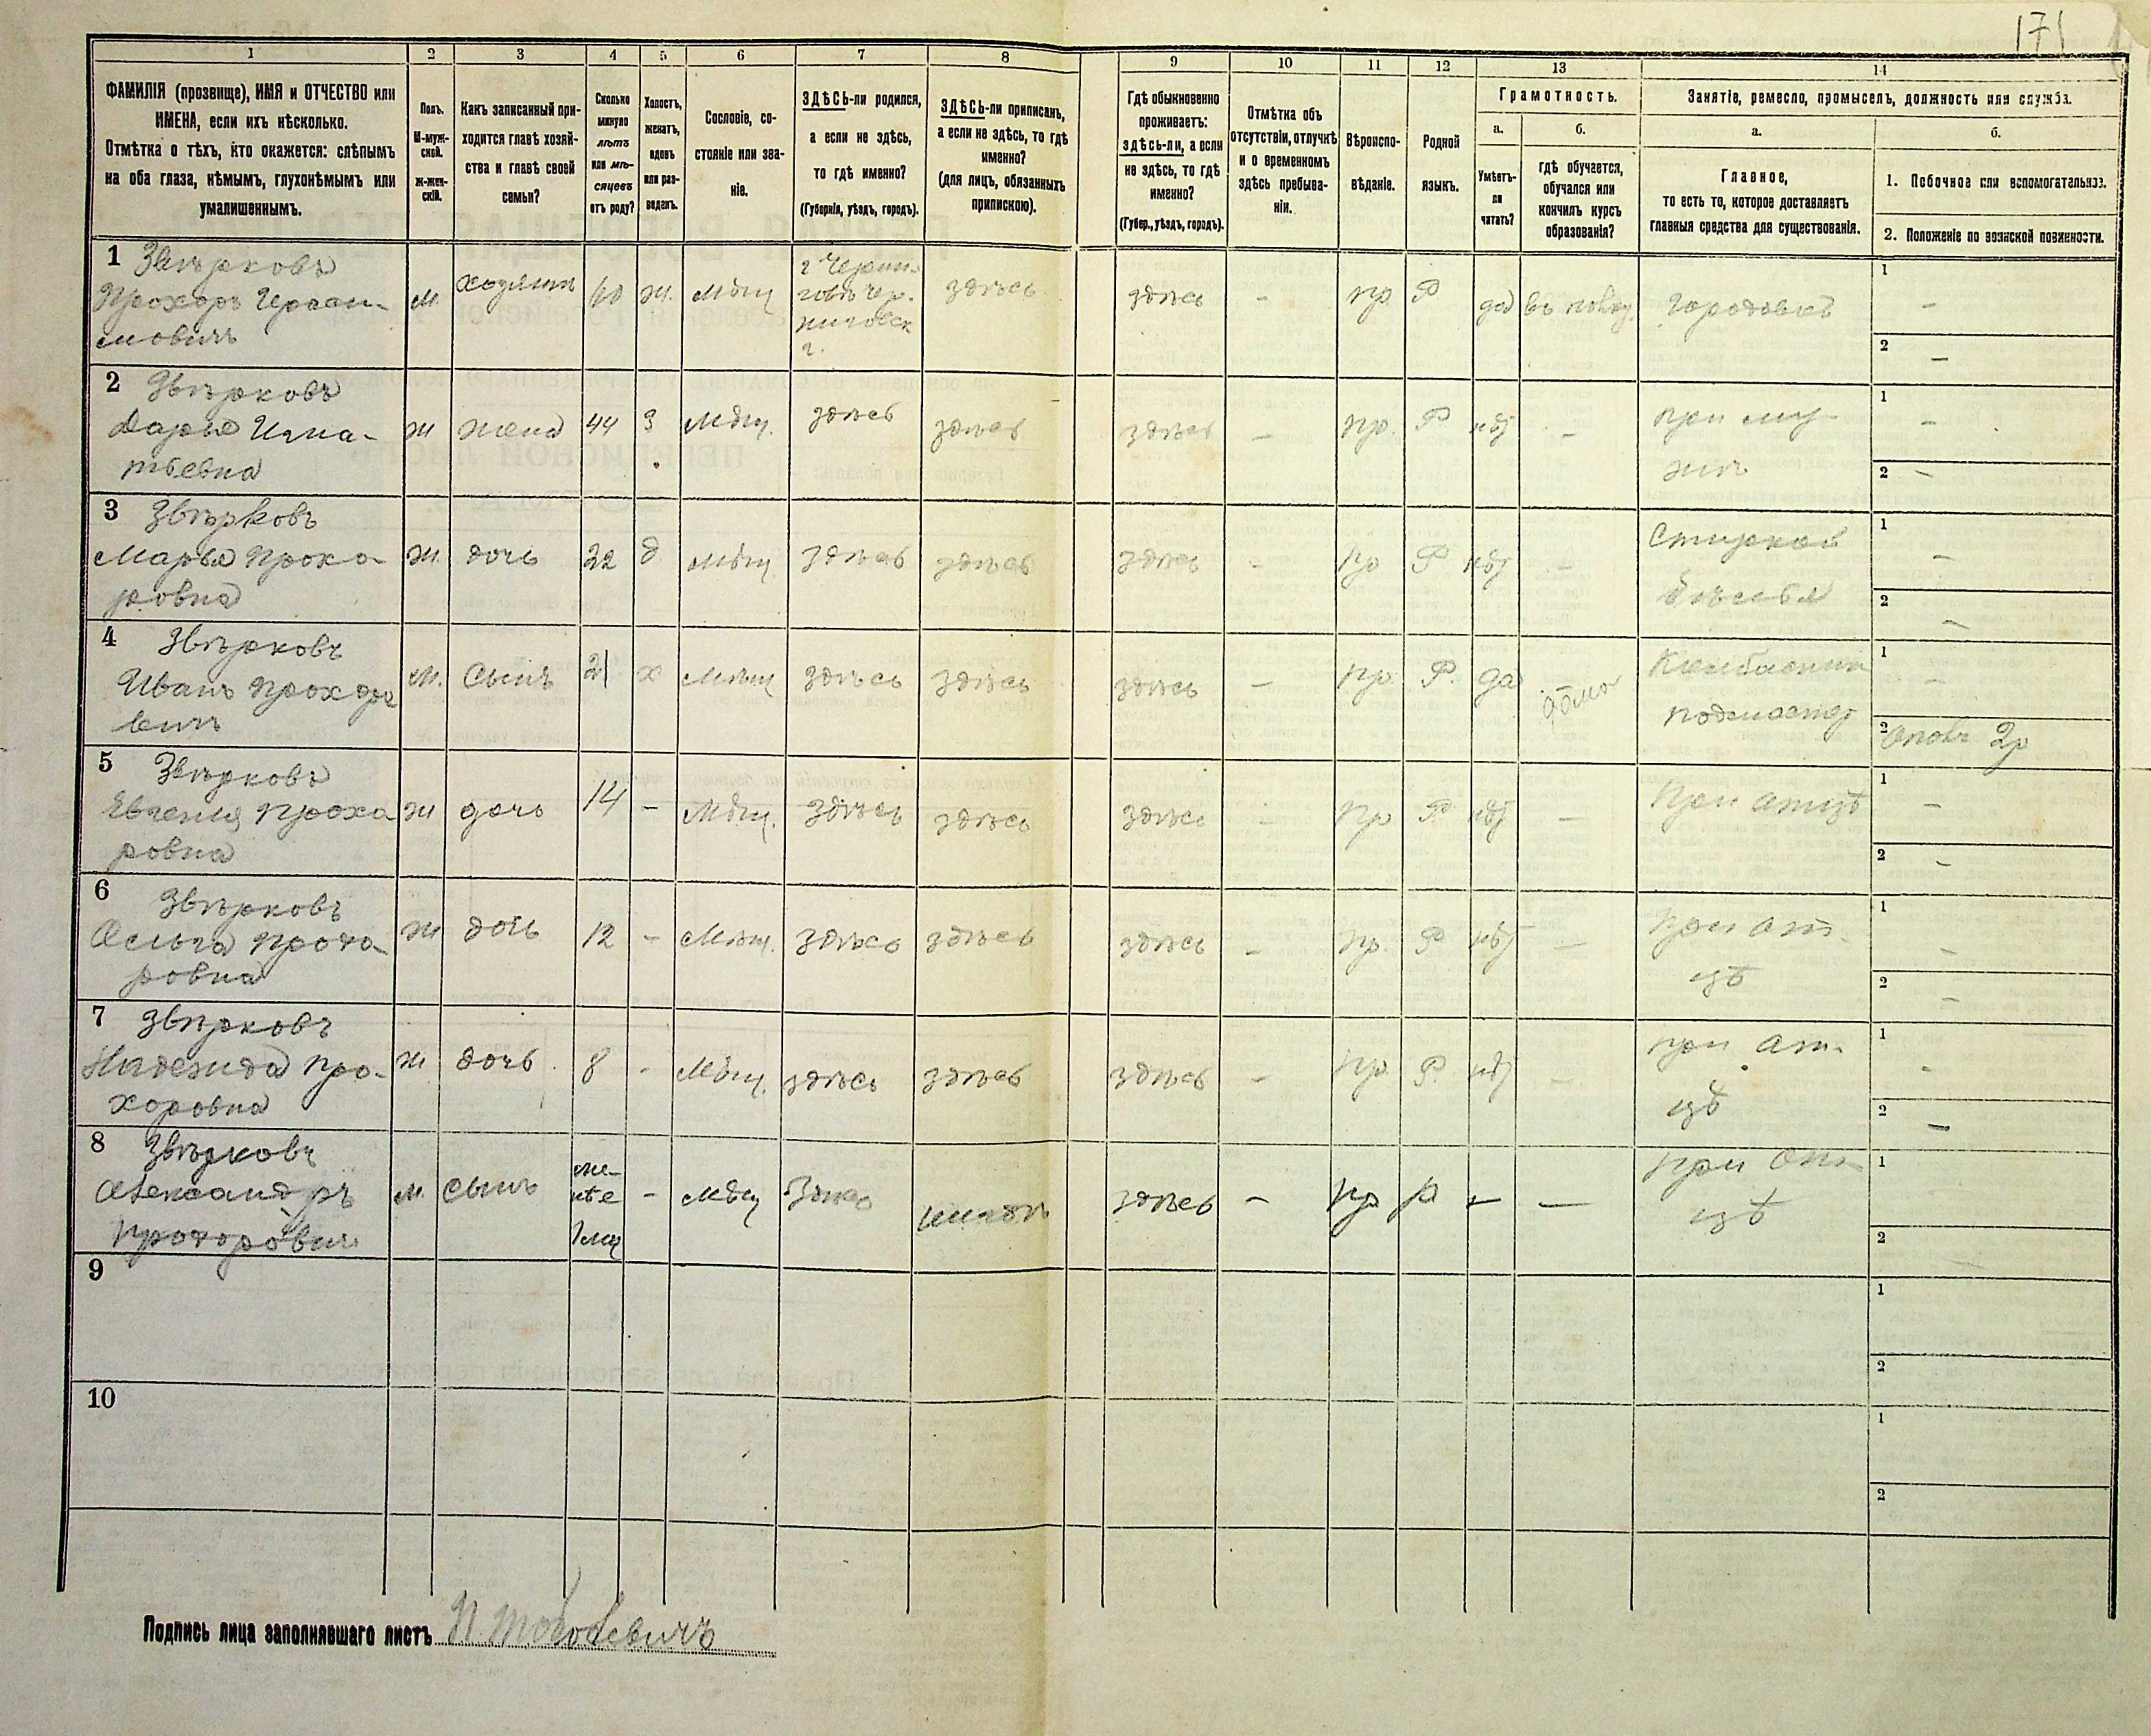 171
1 2 3 4 5 6 7 8 9 10 11 12 13 14
ФАМИЛІЯ (прозвище), ИМЯ и ОТЧЕСТВО или
ИМЕНА, если ихъ нѣсколько.
Отмѣтка о тѣхъ, кто окажется: слѣпымъ
на оба глаза, нѣмымъ, глухонѣмымъ или
умалишеннымъ.
Полъ.
М-муж-
ской.
ж-жен-
скій.
Какъ записанный при-
ходится главѣ хозяй-
ства и главѣ своей
семьи?
Сколько
минуло
лѣтъ
или мѣ-
сяцевъ
отъ роду?
Холостъ,
женатъ,
вдовъ
или раз-
веденъ.
Сословіе, со-
стояніе или зва-
ніе.
ЗДѢСЬ-ли родился,
а если не здѣсь,
то гдѣ именно?
(Губернія, уѣздъ, городъ).
ЗДѢСЬ-ли приписанъ,
а если не здѣсь, то гдѣ
именно?
(для лицъ, обязанныхъ
припискою).
Гдѣ обыкновенно
проживаетъ:
здѣсь-ли, а если
не здѣсь, то гдѣ
именно?
(Губер., уѣздъ, городъ).
Отмѣтка объ
отсутствіи, отлучкѣ
и о временномъ
здѣсь пребыва-
ніи.
Вѣроиспо-
вѣданіе.
Родной
языкъ.
Грамотность.
а.
Умѣетъ-
ли
читать?
б.
гдѣ обучается,
обучался или
кончилъ курсъ
образованія?
Занятіе, ремесло, промыселъ, должность или служба.
а.
Главное,
то есть то, которое доставляетъ
главныя средства для существованія.
б.
1. Побочное или вспомогательное.
2. Положеніе по воинской повинности.
1 Звѣрковъ
Прохоръ Гераси-
мовичъ
м. хозяинъ 60 ж. мѣщ
г Черни-
говъ Чер-
ниговск
г.
здѣсь здѣсь - пр. Р да городовой
1 -
2 -
2 Звѣрковъ
Дарья Игна-
тьевна
ж жена 44 З мѣщ. здѣсь здѣсь здѣсь - пр. Р нѣт -
при му-
жѣ
1 -
2 -
3 Звѣрковъ
Марья Прохо-
ровна
ж. дочь 22 д. мѣщ здѣсь здѣсь здѣсь - пр Р нѣт -
Стиркой
бѣлья
1 -
2 -
4 Звѣрковъ
Иванъ Прохоро
вичъ
м. Сынъ 21 х мѣщ здѣсь здѣсь здѣсь - пр. Р. да дома
Колбасник
подмастер
1 -
2 2р
5 Звѣрковъ
Евгения Проха
ровна
ж дочь 14 - мѣщ. здѣсь здѣсь здѣсь - пр Р. нѣт -
При атцѣ
1 -
2 -
6 Звѣрковъ
Ольга Прохо-
ровна
ж дочь 12 - мѣщ. здѣсь здѣсь здѣсь - пр. Р нѣт -
При от-
цѣ
1 -
2 -
7 Звѣрковъ
Надежда Про-
хоровна
ж дочь 8 - мѣщ. здѣсь здѣсь здѣсь - пр. Р. нѣт
при от-
цѣ
1 -
2 -
8 Звѣрковъ
Александръ
Прохоровичъ
м. сынъ
ме-
нѣе
1 мц
- мѣщ здѣсь здѣсь - пр р - -
при От-
цѣ
1
2
9
1
2
10
1
2
Подпись лица заполнявшаго листъ